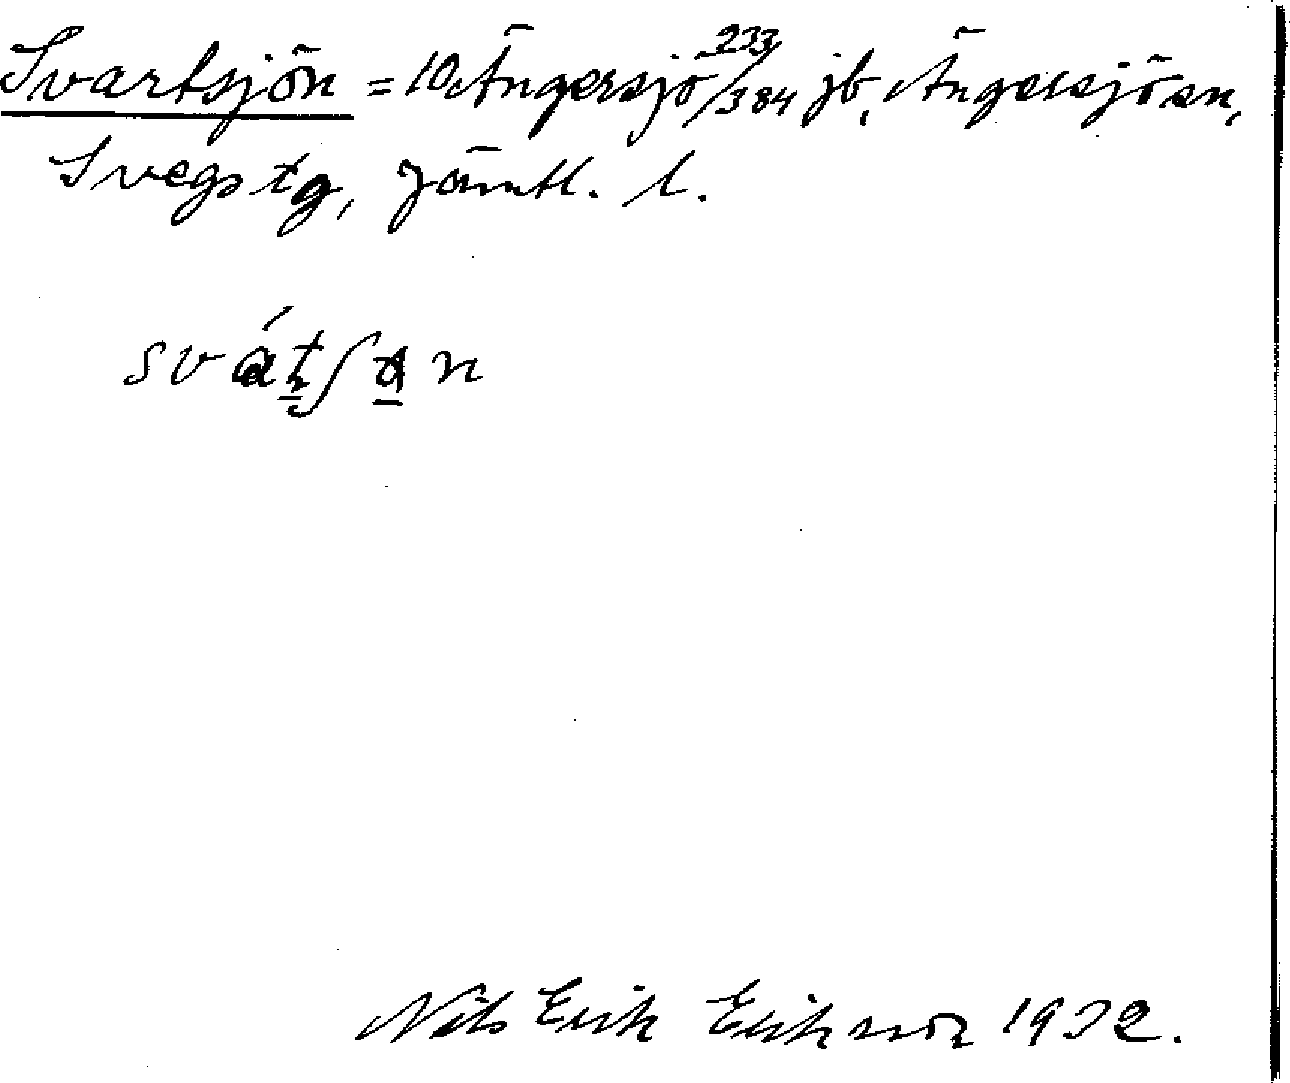 Svartsjön = 10 Ängersjö 233/384 jb, Ängersjö sn,
Svegs tg, Jämtl. l.
Nils Erik Eriksson 1932.